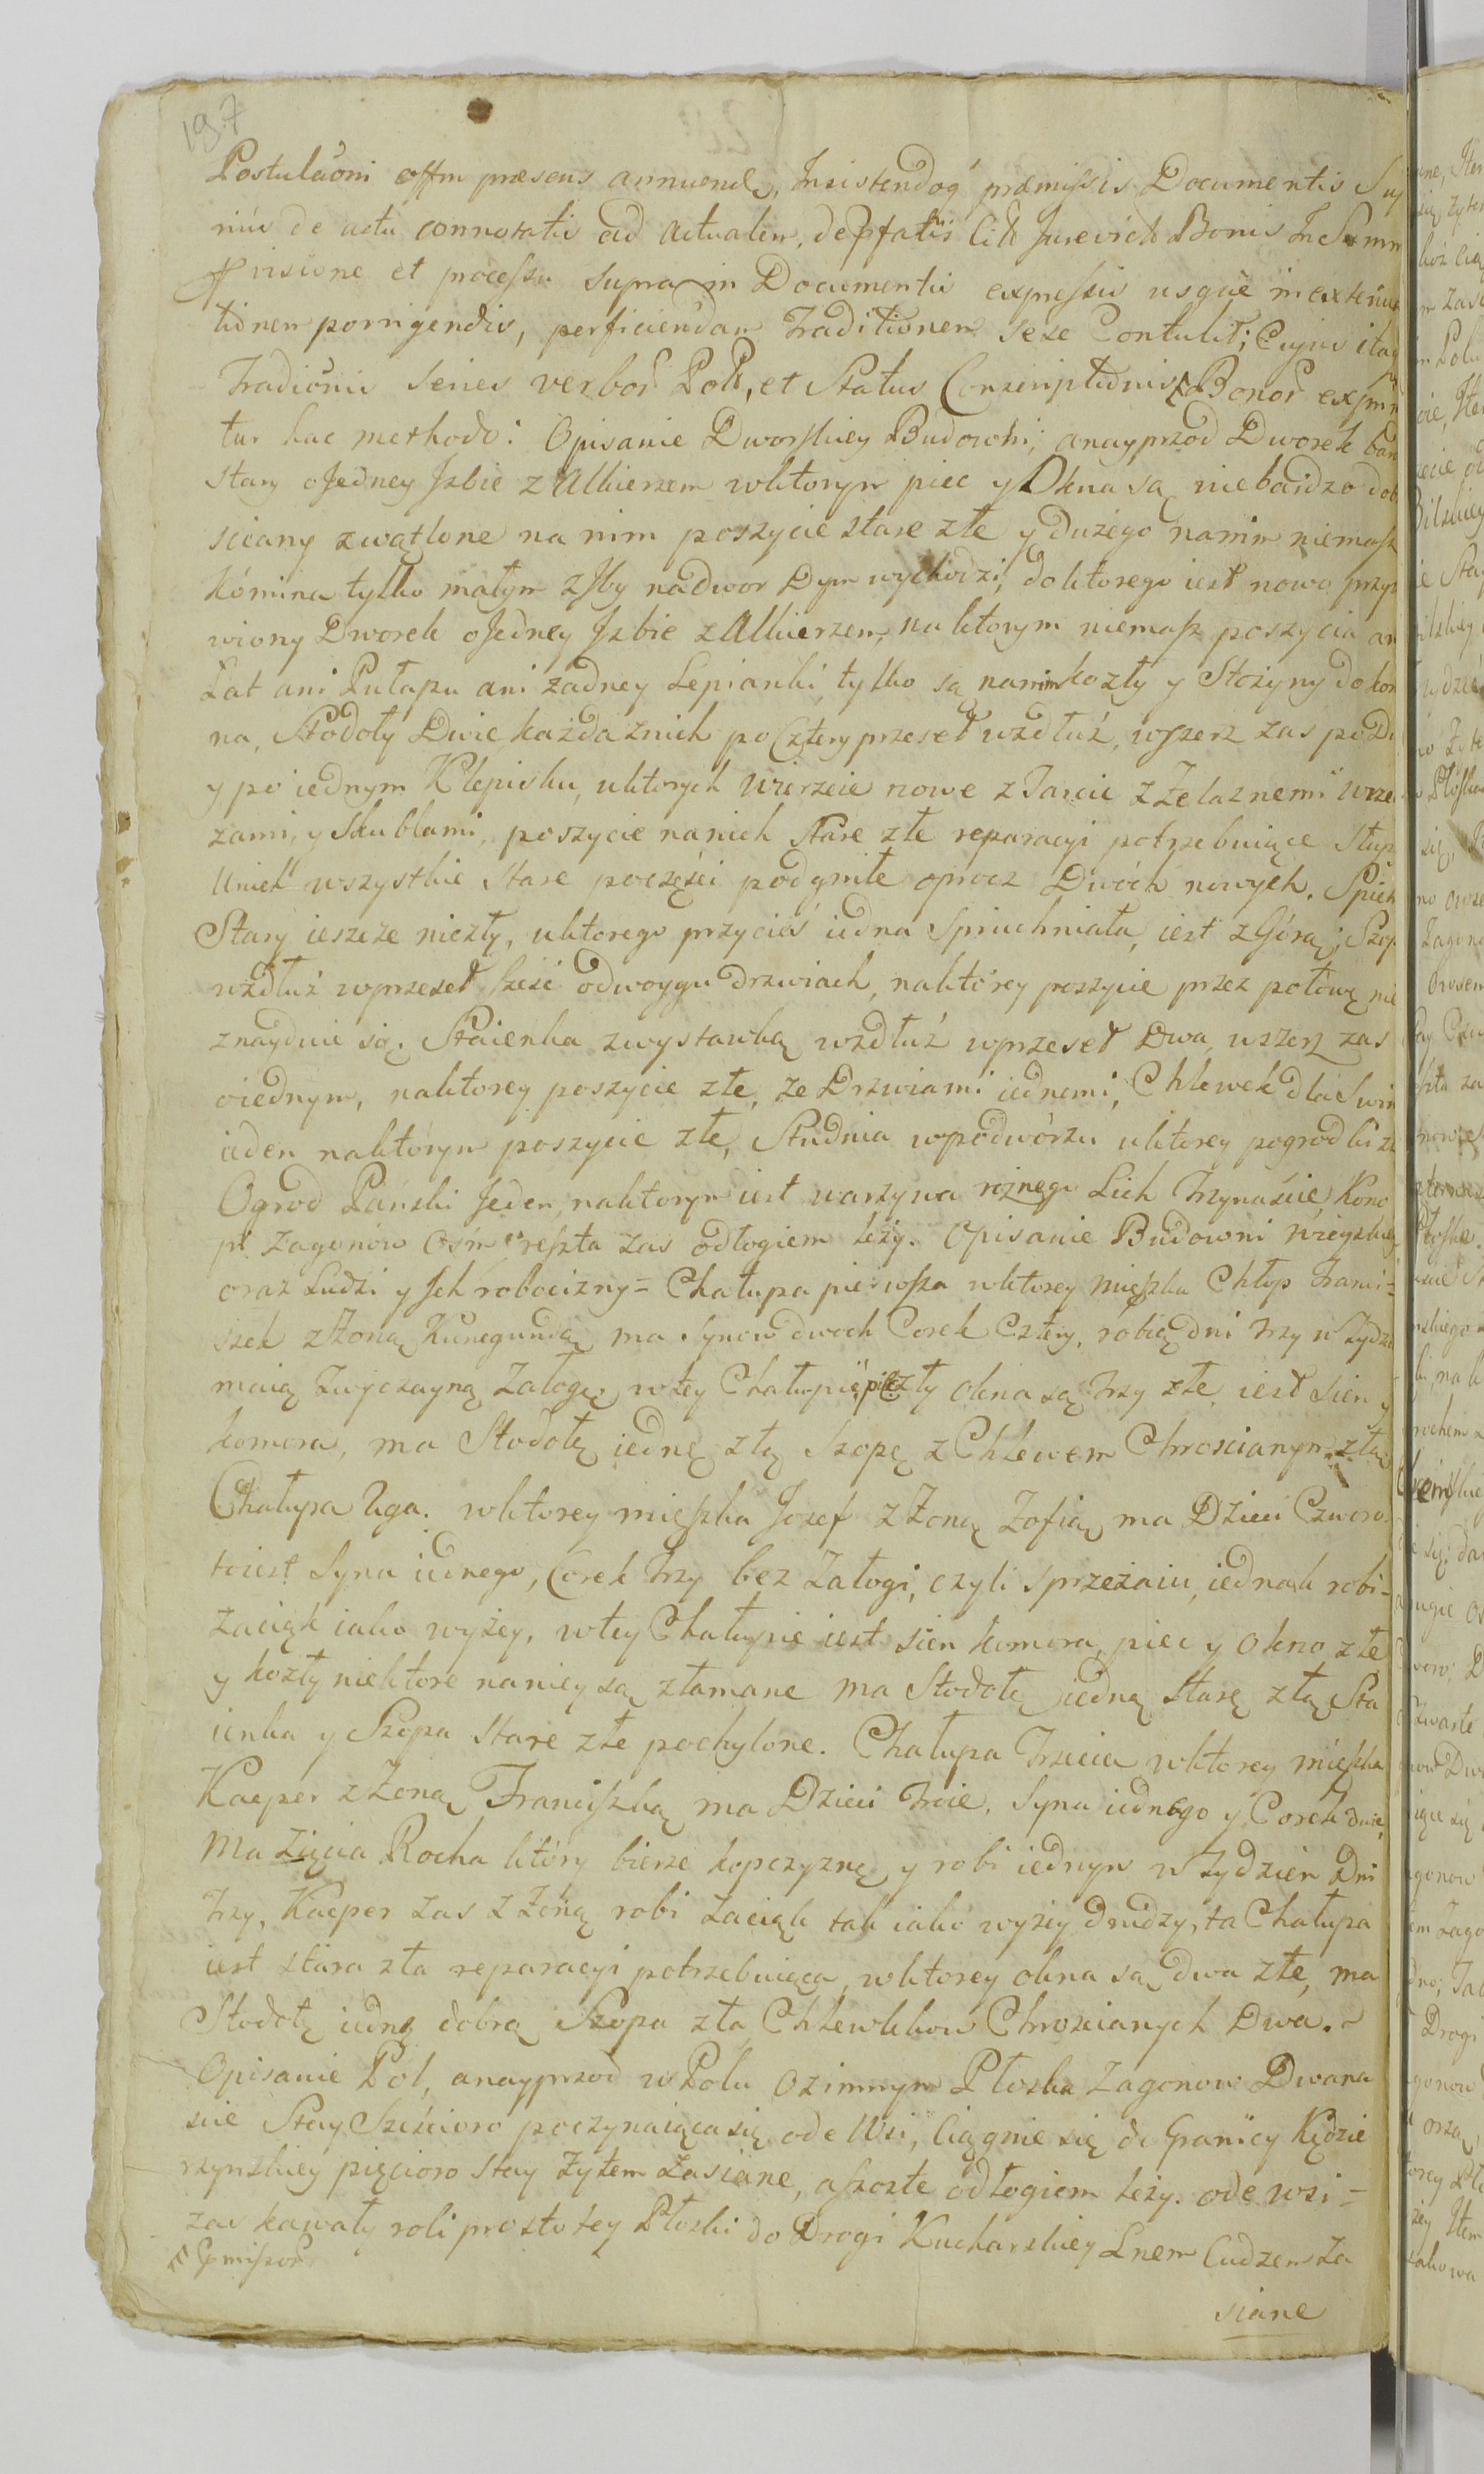 197
Postulaõni offm præsens annuendo, Insistendoq́ præmissis Documentis
de actu connotatis ad actualem, de Bonis In
visione et processu supra in Documentis expressis usque in
porrigendis, perficiendam Traditionem sese Contulit; Cujus
Tradiõnis series verbor̃ Pol, et Status Conscriptionis Bonor̃
tur hac methodo: Opisanie Dworskiey Budowli, a nayprzod Dworek
Stary o Jedney Jzbie z Alkierzem w ktorym piec y Okna są niebardzo
sciany zwątlone na nim poszycie stare złe y dużego na nim niemasz
kómina tylko małym z Jzby na dwor Dym wychodzi, do ktorego iest nowo
wiony Dworek o Jedney Jzbie z Alkierzem, na ktorym niemasz poszycia
Łat ani Pułapu ani żadney Lepianki, tylko są na nim kozły y Stożyny do
na, Stodoły Dwie każda z nich po Cztery przeseł wzdłuż, wszerz zas po
y po iednym Klepisku, u ktorych wierzeie nowe z Tarcic z Żelaznemi
zami, y skublami, poszycie na nich stare złe reparacyi potrzebuiące
U nich wszystkie stare poczęści podgniłe oprocz Dwóch nowych.
Stary ieszcze niezły, u ktorego przycieś iedna Spruchniała, iest z Górą;
wzdłuż w przeseł sześć o dwoygu drzwiach, na ktorey poszycie przez połowę nie
znayduie się. Staienka z wystawką wzdłuż w przeseł Dwa, wszerz zas
o iednym, na ktorey poszycie złe, ze Drzwiami iednemi, Chlewek dla
ieden na ktorym poszycie złe, Studnia w podwórzu u ktorey pogrodki
Ogrod Pański Jeden, na ktorym iest warzywa rożnego Lich Trzynaście, Kono
pi Zagonów Ośm reszta zas odłogiem leży. Opisanie Budowni wieyskiey
oraz Ludzi y Jch robocizny = Chałupa pierwsza w ktorey mięszka Chłop Franci=
szek z Żoną Kunegundą ma Synow dwoch Corek Cztery, robią dni trzy w
maią zwyczayną Załogę, w tey Chałupie piec zły okna są trzy złe, iest sien y
komora, ma Stodołę iednę złą Szopę z Chlewem Chroscianym złą
Chałupa 2ga. w ktorey mięszka Jozef z Żoną Zofią ma Dzieci Czworo
to iest Syna iednego, Corek trzy bez Załogi, czyli sprzężaiu, iednak robi=
zaciąk iako wyżey, w tey Chałupie iest sien komora, piec y okno złe
y kozły niektore na niey są złamane ma Stodołę iedną starę złą Sta
ienka y Szopa stare złe pochylone. Chałupa Trzecia w ktorey mięszka
Kacper z Żoną Franciszką ma Dzieci troie, Syna iednego y Corek dwie,
Ma Zięcia Rocha który bierze kopczyznę y robi iednym w Tydzien Dni
trzy, Kacper zas z Żoną robi zaciąk tak iako wyżey drudzy, ta Chałupa
iest stara zła reparacyi potrzebuiąca, w ktorey okna są dwa złe, ma
Stodołę iednę dobrą Szopa zła, Chlewkkow Chroscianych Dwa.
Opisanie Pol, a nayprzod w Polu Ozimnym Płoska Zagonow Dwana
scie Stay Sześcioro poczynaiąca się ode Wsi, Ciągnie się do Granicy Kędzie
rzynskiey pięcioro stay żytem zasiane, a szoste odłogiem leży. ode wsi =
zas kawały roli prosto tey Płoski do Drogi Kucharskiey Lnem Cudzem Za
siane